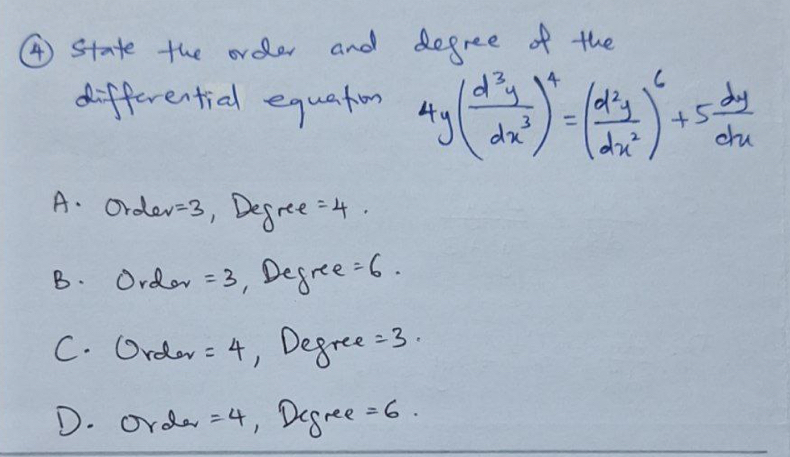 ④ State the order and degree of the
differential equation 4y(d³y/dx³)⁴ = (d²y/dx²)⁶ + 5 dy/dx
A. Order=3, Degree=4.
B. Order=3, Degree=6.
C. Order=4, Degree=3.
D. Order=4, Degree=6.